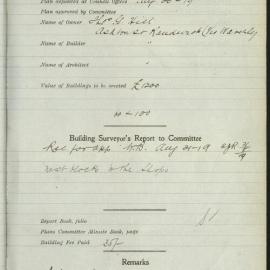 Plan deposited at Council Offices Aug 20 - 19
Plan approved by Committee
Name of Owner Thos G. Hill
Ashton St Randwick
Name of Builder "
Name of Architect "
Value of Buildings to be erected £1200
Building Surveyor's Report to Committee
Rec for app W.B. Aug 21-19
next block to the shops
Report Book, folio
Plans Committee Minute Book, page
Building Fee Paid 35/-
Remarks